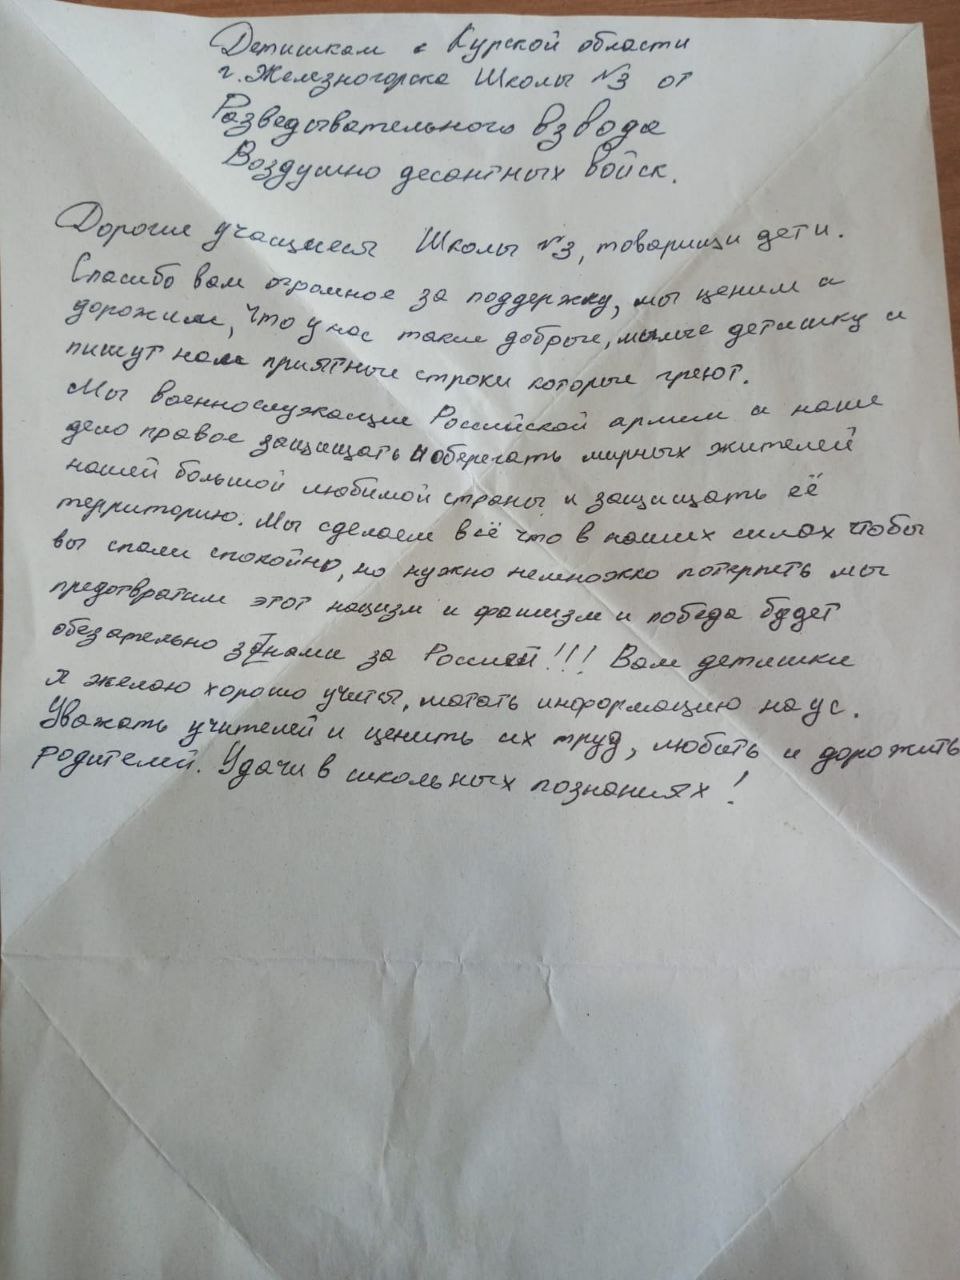 Детишкам с Курской области
г. Железногорска Школы №3 от
Разведывательного взвода
Воздушно десантных войск.
Дорогие учащиеся Школы №3, товарищи дети.
Спасибо вам огромное за поддержку, мы ценим и
дорожим, что у нас такие добрые, милые детишки и
пишут нам приятные строки которые греют.
Мы военнослужащие Российской армии и наше
дело правое защищать и оберегать мирных жителей
нашей большой любимой страны и защищать её
территорию. Мы сделаем всё что в наших силах чтобы
вы спали спокойно, но нужно немножко потерпеть мы
предотвратим этот нацизм и фашизм и победа будет
обезательно за нами за Россией!!! Вам детишки
я желаю хорошо учится, мотать информацию на ус.
Уважать учителей и ценить их труд, любить и дорожить
родителей. Удачи в школьных познаниях!